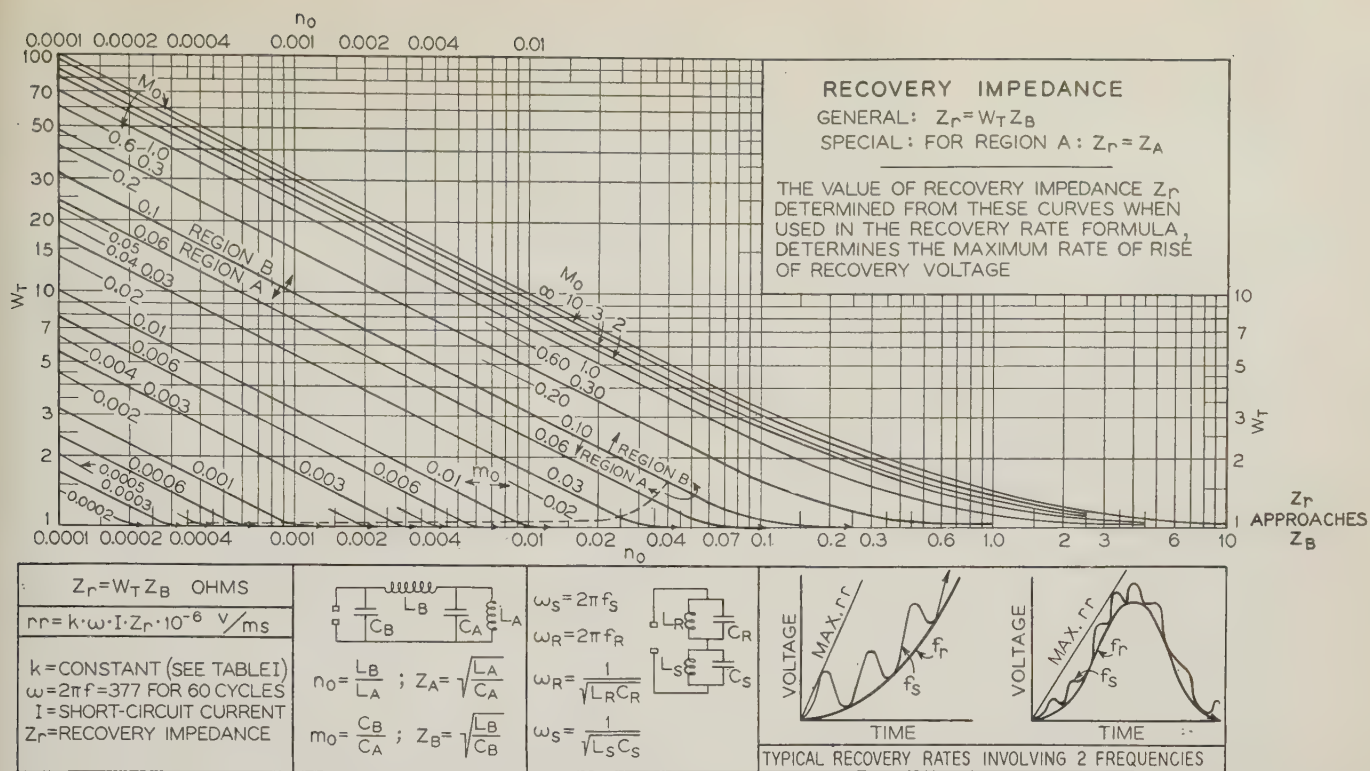 n₀
0.0001 0.0002 0.0004 0.001 0.002 0.004 0.01
100
70
50
30
20
15
10
7
5
3
2
1
W_T
M₀
0.6-1.0
0.3
0.2
0.1
0.06
0.05
0.04 0.03
0.02
0.01
0.006
0.004 0.003
0.002
0.001
0.0006
0.0005
0.0003
0.0002
REGION B
REGION A
0.003
0.006
0.01
m₀
M₀
∞-10-3 2
0.60 1.0
0.30
0.20
0.10
0.06
0.03
0.02
REGION B
REGION A
RECOVERY IMPEDANCE
GENERAL: Zr=W_T Z_B
SPECIAL: FOR REGION A: Zr=Z_A
THE VALUE OF RECOVERY IMPEDANCE Zr
DETERMINED FROM THESE CURVES WHEN
USED IN THE RECOVERY RATE FORMULA,
DETERMINES THE MAXIMUM RATE OF RISE
OF RECOVERY VOLTAGE
10
7
5
3
2
1
W_T
Zr
APPROACHES
Z_B
0.0001 0.0002 0.0004 0.001 0.002 0.004 0.01 0.02 0.04 0.07 0.1 0.2 0.3 0.6 1.0 2 3 6 10
n₀
Zr=W_T Z_B OHMS
rr=k·ω·I·Zr·10⁻⁶ V/ms
k=CONSTANT (SEE TABLE I)
ω=2πf=377 FOR 60 CYCLES
I=SHORT-CIRCUIT CURRENT
Zr=RECOVERY IMPEDANCE
L_B
C_B C_A L_A
n₀=L_B/L_A ; Z_A=√(L_A/C_A)
m₀=C_B/C_A ; Z_B=√(L_B/C_B)
ω_S=2πf_S
ω_R=2πf_R
ω_R=1/√(L_R C_R)
ω_S=1/√(L_S C_S)
L_R C_R
L_S C_S
VOLTAGE
MAX. rr
fr
fs
TIME
VOLTAGE
MAX. rr
fr
fs
TIME
TYPICAL RECOVERY RATES INVOLVING 2 FREQUENCIES